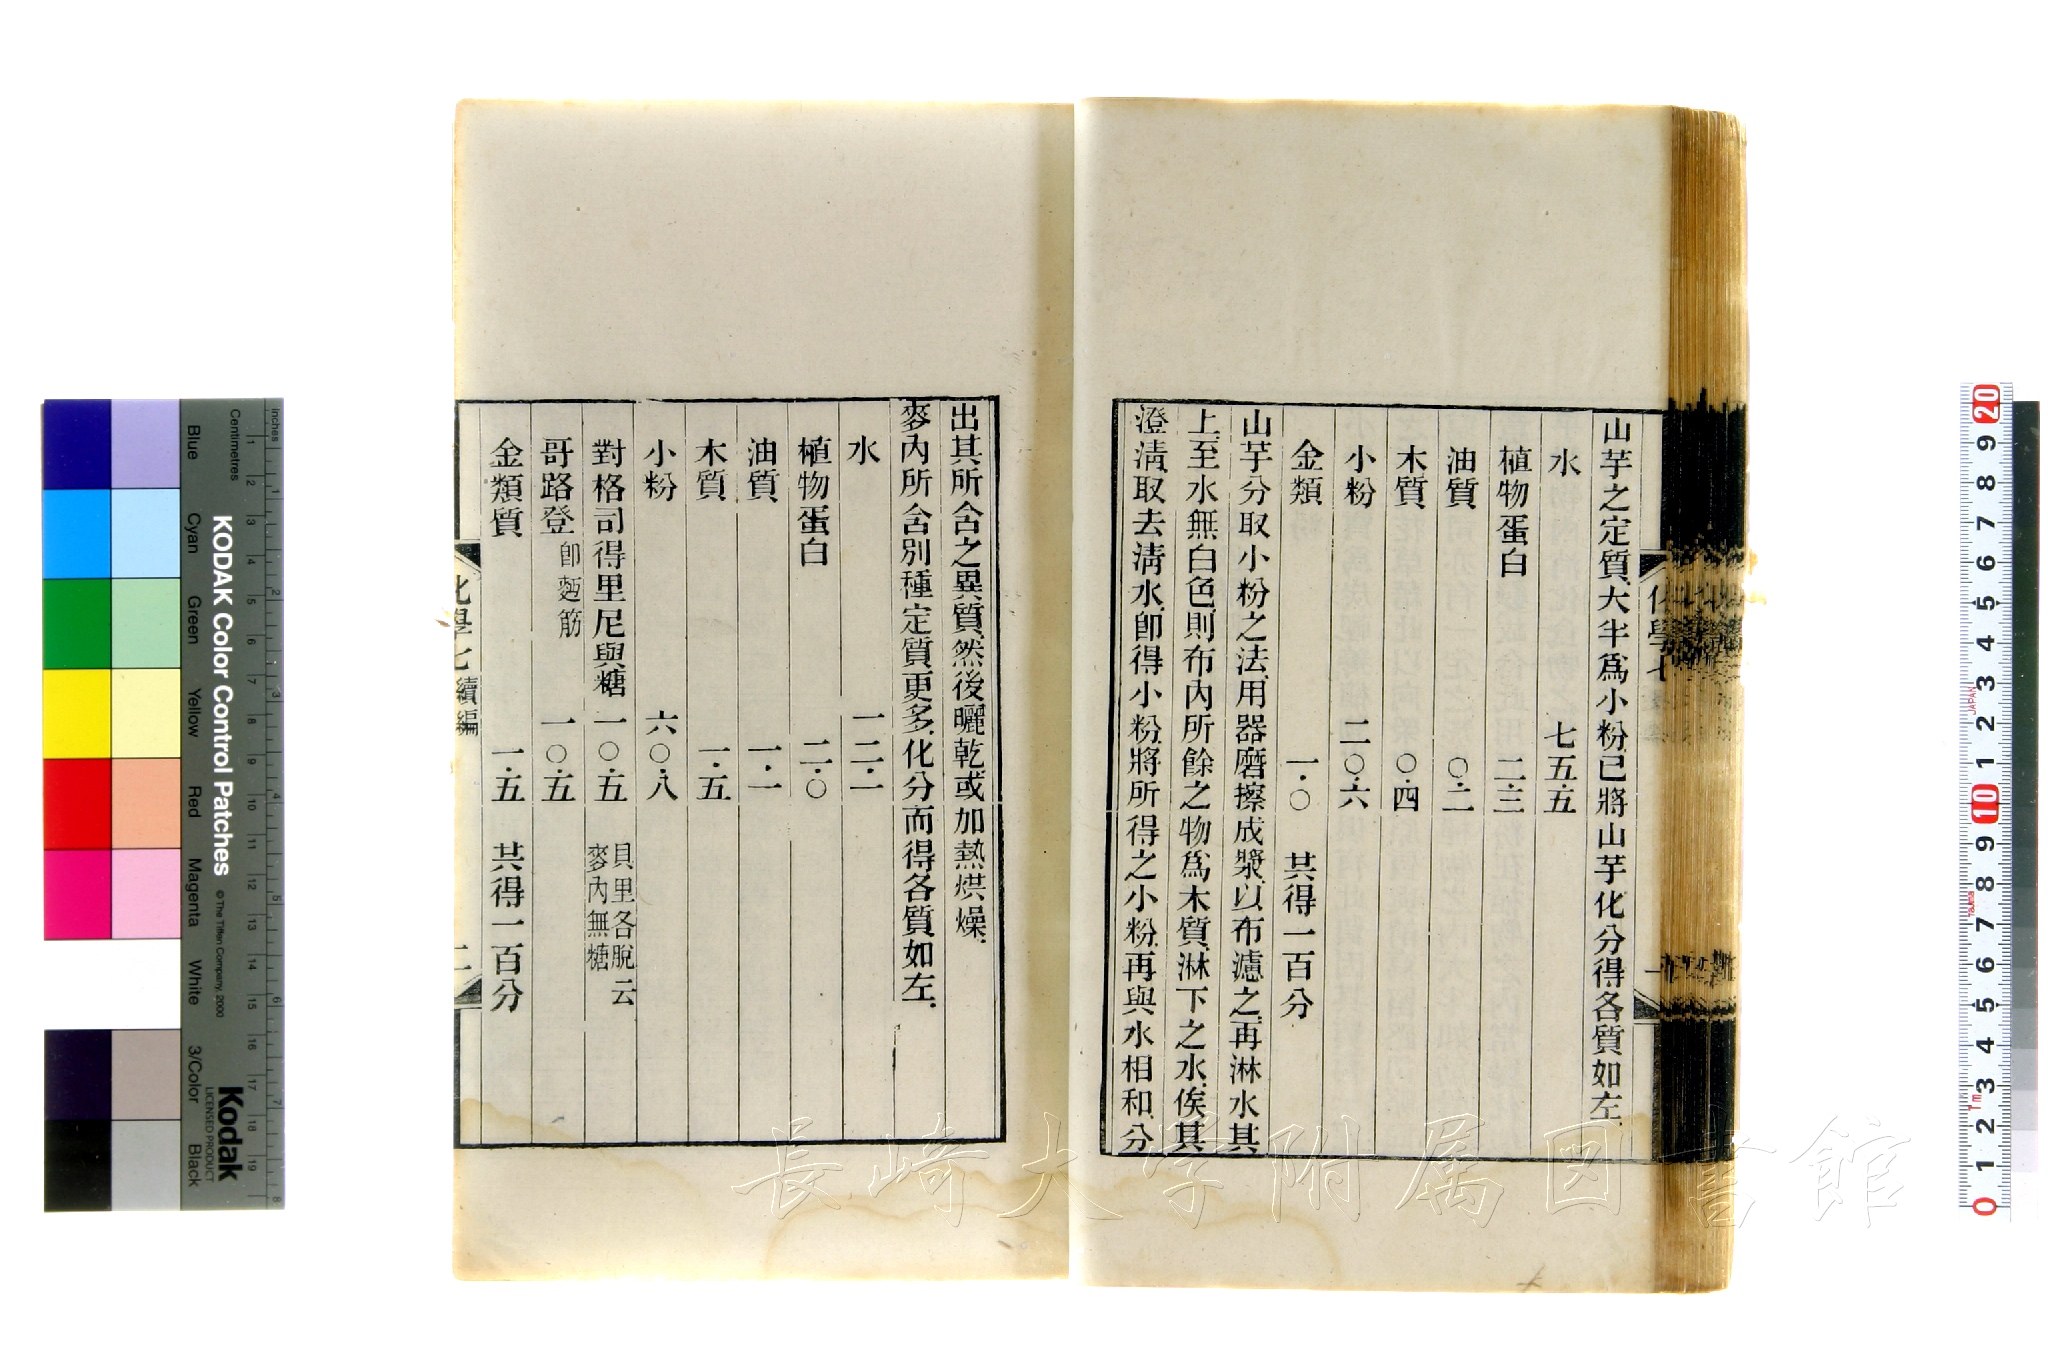 化學七
山芋之定質大半爲小粉已將山芋化分得各質如左
水 七五·五
植物蛋白 二·三
油質 〇·二
木質 〇·四
小粉 二〇·六
金類 一·〇 共得一百分
山芋分取小粉之法用器磨擦成漿以布濾之再淋水其
上至水無白色則布內所餘之物爲木質淋下之水俟其
澄淸取去淸水卽得小粉將所得之小粉再與水相和分
出其所含之異質然後曬乾或加熱烘燥
麥內所含別種定質更多化分而得各質如左
水 一二·一
植物蛋白 二·〇
油質 一·一
木質 一·五
小粉 六〇·八
對格司得里尼與糖 一〇·五 貝里各脫云麥內無糖
哥路登 卽麪筋 一〇·五
金類質 一·五 共得一百分
化學七 續編 二
長崎大学附属図書館
KODAK Color Control Patches
© The Tiffen Company, 2000
Kodak
LICENSED PRODUCT
Inches
Centimetres
Blue Cyan Green Yellow Red Magenta White 3/Color Black
1 2 3 4 5 6 7 8 9 10 11 12 13 14 15 16 17 18 19
0 1 2 3 4 5 6 7 8 9 10 1 2 3 4 5 6 7 8 9 20
JAPAN